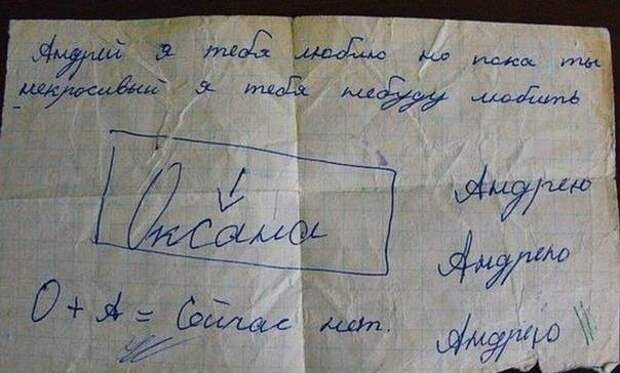 Андрей я тебя люблю но пока ты
некросивый я тебя небуду любить
Оксана
Андрею
Андрею
Андрею
О + А = Сейчас нет.